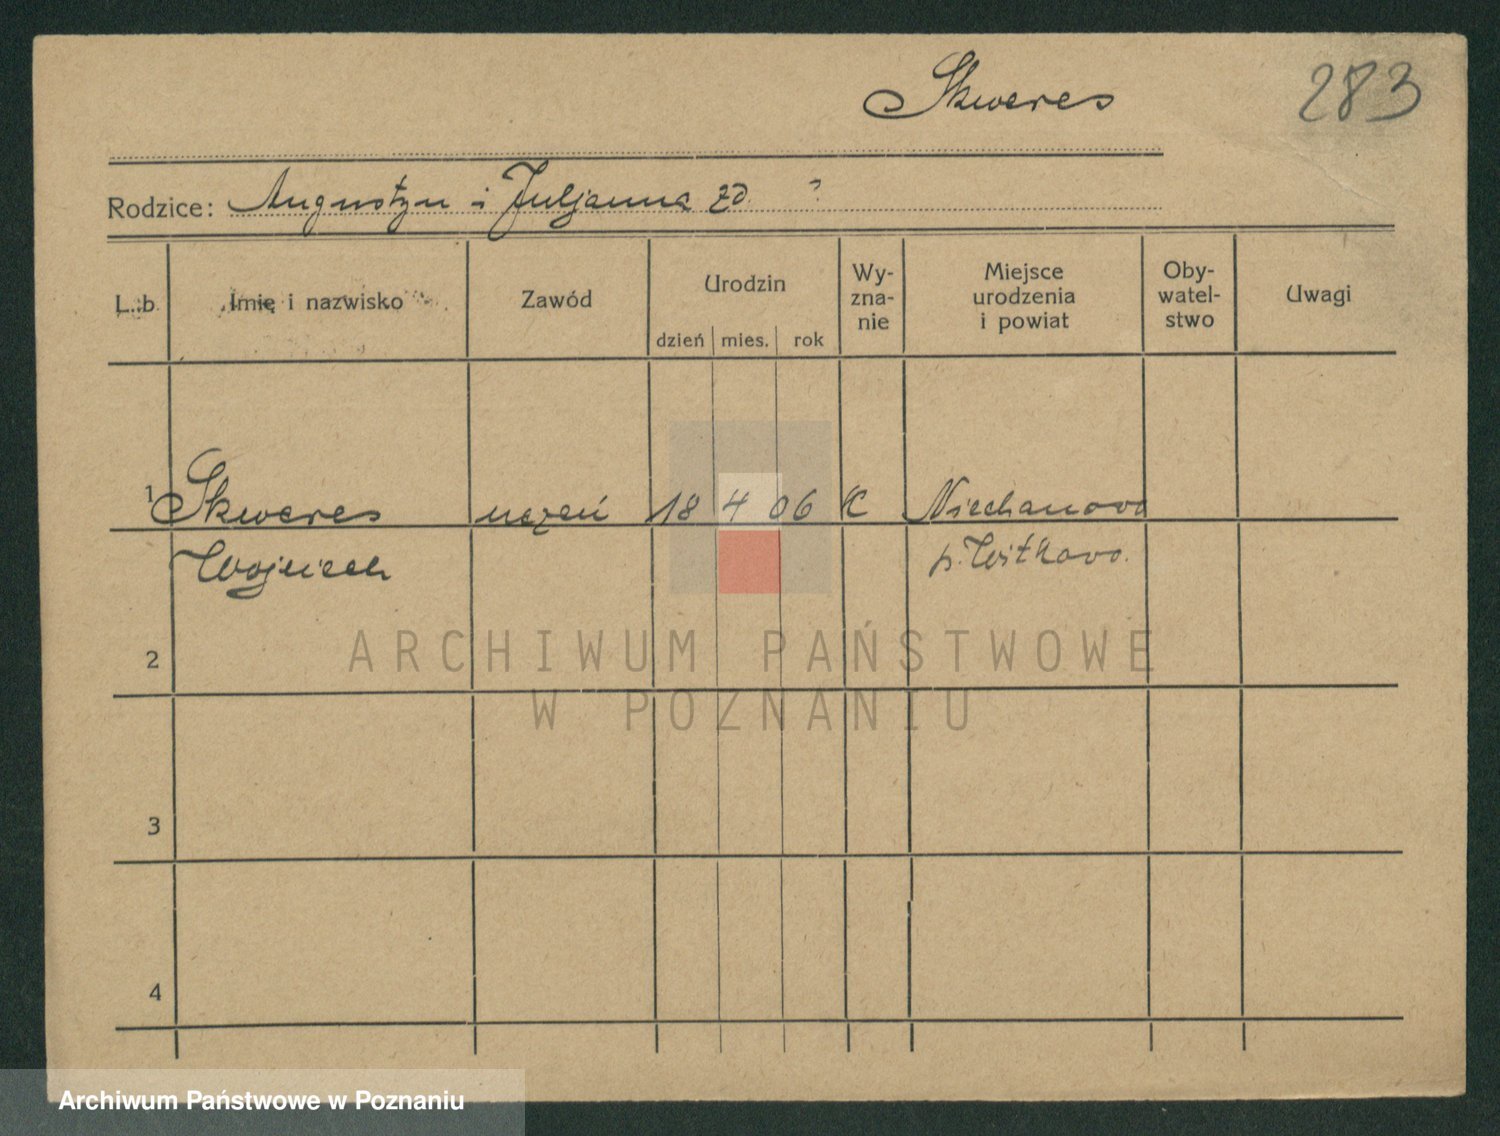 Skweres
283
Rodzice: Augustyn i Juljanna zd ?
L. b. Imię i nazwisko Zawód Urodzin Wy-zna-nie Miejsce urodzenia i powiat Oby-watel-stwo Uwagi
dzień mies. rok
1 Skweres uczeń 18 4 06 K Niechanowo
Wojciech p. Witkowo.
2
ARCHIWUM PAŃSTWOWE
W POZNANIU
3
4
Archiwum Państwowe w Poznaniu